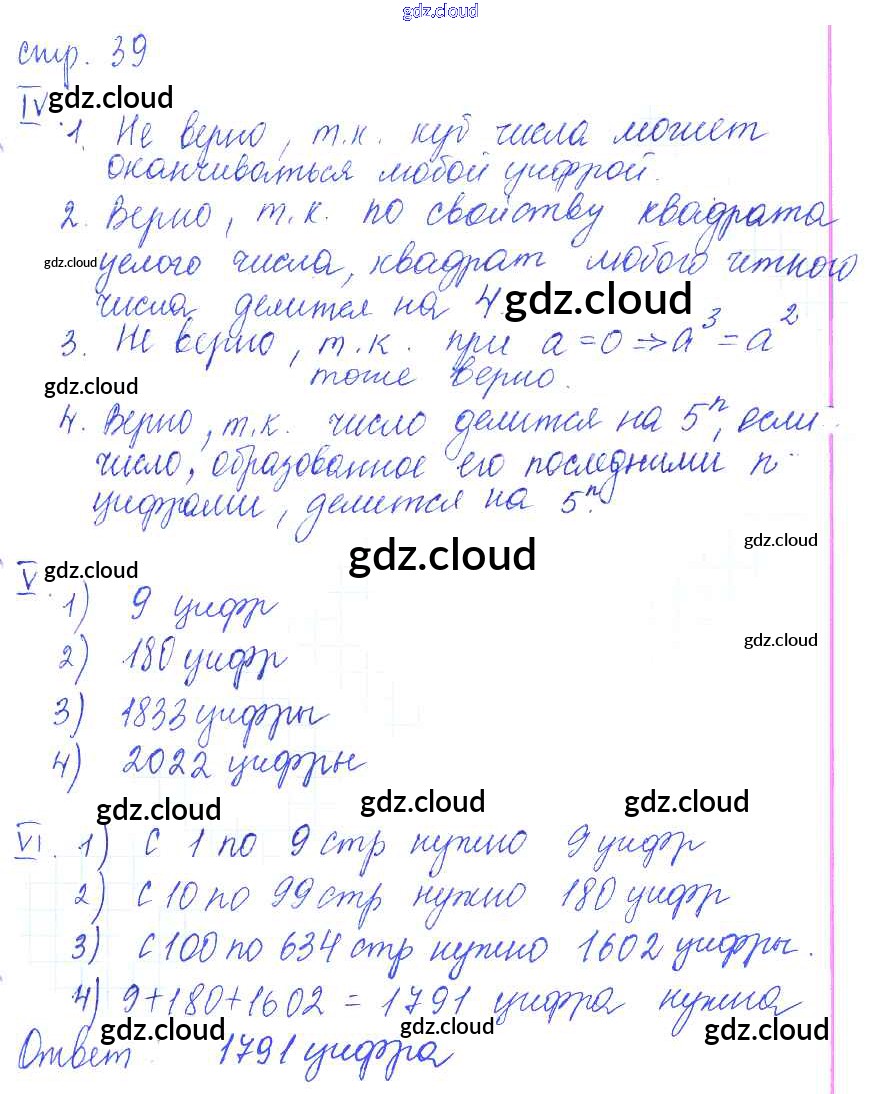 gdz.cloud
стр. 39
IV gdz.cloud
1. Не верно, т.к. куб числа может
оканчиваться любой цифрой.
2. Верно, т.к. по свойству квадрата
gdz.cloud целого числа, квадрат любого четного
числа делится на 4. gdz.cloud
3. Не верно, т.к. при a=0 => a³ = a²
тоже верно.
gdz.cloud
4. Верно, т.к. число делится на 5ⁿ, если
число, образованное его последними n
цифрами, делится на 5ⁿ.
gdz.cloud
gdz.cloud
V. gdz.cloud
1) 9 цифр
gdz.cloud
2) 180 цифр
3) 1833 цифры
4) 2022 цифры
gdz.cloud gdz.cloud gdz.cloud
VI. 1) С 1 по 9 стр нужно 9 цифр
2) С 10 по 99 стр нужно 180 цифр
3) С 100 по 634 стр нужно 1602 цифры.
4) 9+180+1602 = 1791 цифра нужна
gdz.cloud gdz.cloud gdz.cloud
Ответ: 1791 цифра